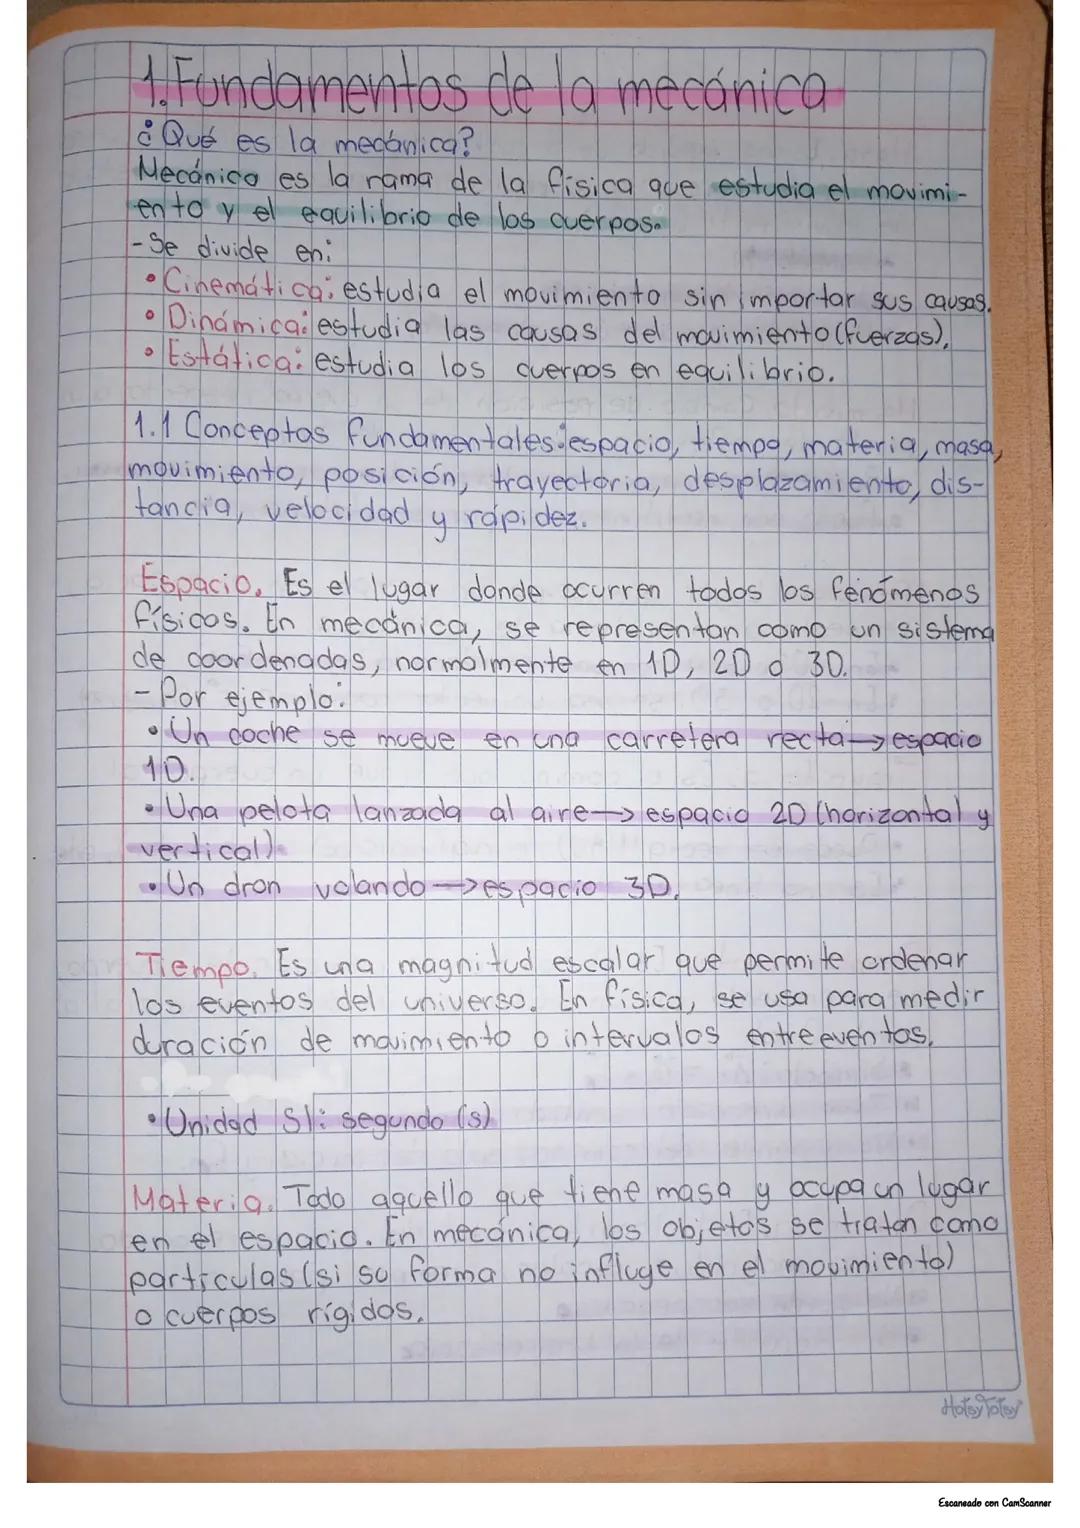 1. Fundamentos de la mecánica
¿Qué es la mecánica?
Mecánica es la rama de la física que estudia el movimi-
ento y el equilibrio de los cuerpos.
- Se divide en:
• Cinemática: estudia el movimiento sin importar sus causas.
• Dinámica: estudia las causas del movimiento (fuerzas).
• Estática: estudia los cuerpos en equilibrio.
1.1 Conceptos fundamentales: espacio, tiempo, materia, masa,
movimiento, posición, trayectoria, desplazamiento, dis-
tancia, velocidad y rapidez.
Espacio. Es el lugar donde ocurren todos los fenómenos
físicos. En mecánica, se representan como un sistema
de coordenadas, normalmente en 1D, 2D o 3D.
- Por ejemplo:
• Un coche se mueve en una carretera recta → espacio
1D.
• Una pelota lanzada al aire → espacio 2D (horizontal y
vertical).
• Un dron volando → espacio 3D.
Tiempo. Es una magnitud escalar que permite ordenar
los eventos del universo. En física, se usa para medir
duración de movimiento o intervalos entre eventos.
• Unidad SI: segundo (s)
Materia. Todo aquello que tiene masa y ocupa un lugar
en el espacio. En mecánica, los objetos se tratan como
partículas (si su forma no influye en el movimiento)
o cuerpos rígidos.
Hotsy Totsy
Escaneado con CamScanner